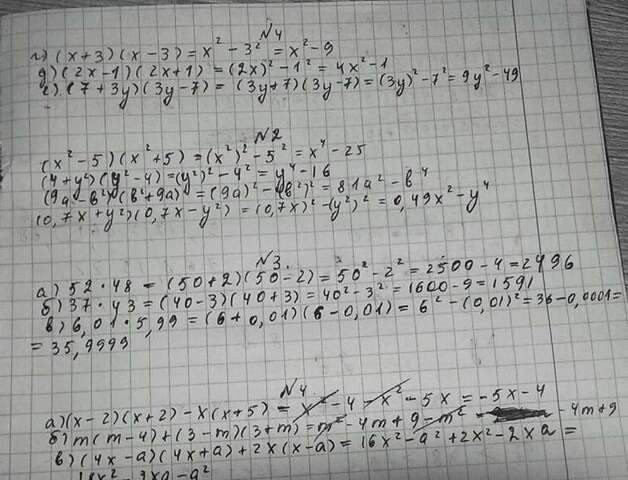 №4
г) (x+3)(x-3) = x² - 3² = x² - 9
д) (2x-1)(2x+1) = (2x)² - 1² = 4x² - 1
е) (7+3y)(3y-7) = (3y+7)(3y-7) = (3y)² - 7² = 9y² - 49
№2
(x² - 5)(x² + 5) = (x²)² - 5² = x⁴ - 25
(4+y²)(y² - 4) = (y²)² - 4² = y⁴ - 16
(9a - b²)(b² + 9a) = (9a)² - (b²)² = 81a² - b⁴
(0,7x + y²)(0,7x - y²) = (0,7x)² - (y²)² = 0,49x² - y⁴
№3.
а) 52 · 48 = (50+2)(50-2) = 50² - 2² = 2500 - 4 = 2496
б) 37 · 43 = (40-3)(40+3) = 40² - 3² = 1600 - 9 = 1591
в) 6,01 · 5,99 = (6+0,01)(6-0,01) = 6² - (0,01)² = 36 - 0,0001 =
= 35,9999
№4
а) (x-2)(x+2) - x(x+5) = x² - 4 - x² - 5x = -5x - 4
б) m(m-4) + (3-m)(3+m) = m² - 4m + 9 - m² - 4m + 9
в) (4x-a)(4x+a) + 2x(x-a) = 16x² - a² + 2x² - 2xa =
18x² - 2xa - a²